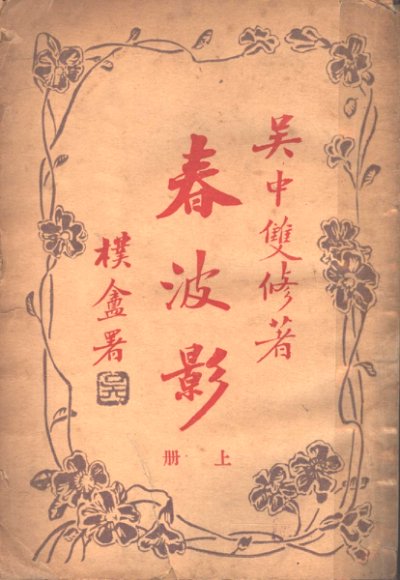 吴中雙修著
春波影
上册
樸盦署